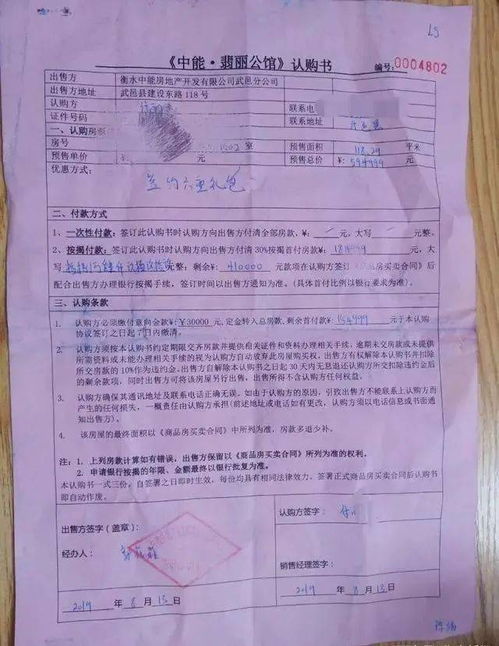 《中能·翡丽公馆》认购书
编号:0004802
出售方 衡水中能房地产开发有限公司武邑分公司
出售方地址 武邑县建设东路118号
认购方 联系电
证件号码 联系地址
一、认购房
房号 室 预售面积 118.29 平米
预售单价 元 预售总价 ¥: 594999 元
优惠方式: 签约六重礼包
二、付款方式
1、一次性付款:签订此认购书时认购方向出售方付清全部房款,¥: 元,大写 元整。
2、按揭付款:签订此认购书时认购方向出售方付清30%按揭首付房款¥: 184999 元,大
写 整; 剩余¥: 410000 元款项在认购方签订《商品房买卖合同》后
配合出售方办理银行按揭手续,签订时间以出售方通知为准。(具体首付比例以银行要求为准)。
三、认购条款
1. 认购方必须缴付意向金款¥:¥30000 元,定金转入总房款,剩余首付款¥: 154999 元于本认购
协议签订之日起7日内缴清。
2. 认购方须按本认购书约定期限交齐房款并提供相关证件和资料办理相关手续,逾期未交房款或未提供
所需资料或未能办理相关手续的视为认购方自动放弃此房屋购买权,出售方有权解除本认购书并扣除
所交房款的10%作为违约金。出售方自解除本认购书之日起30天内无息退还认购方所交扣除违约金后
的剩余款项,同时出售方可将该房屋另行出售,出售所得不含认购方任何权益。
3. 认购方确保其通讯地址及联系电话正确无误。如由于认购方的原因,引致出售方不能联系上认购方而
产生的任何损失,一概责任由认购方承担(前述地址或电话如有更改,认购方须以电话信息或书面通
知出售方)。
4. 该房屋的最终面积以《商品房买卖合同》中所列为准,房款多退少补。
注:1.上列房款计算如有错误,出售方保留以《商品房买卖合同》所列为准的权利。
2.申请银行按揭的年限、金额最终以银行批复为准。
本认购书一式三份,自签署之日即时生效,每份均具有相同法律效力。签署正式商品房买卖合同后认购书
即自动作废。
出售方签字(盖章): 认购方签字:
经办人: 销售经理签字:
2019 年 8 月 13 日 2019 年 8 月 13 日